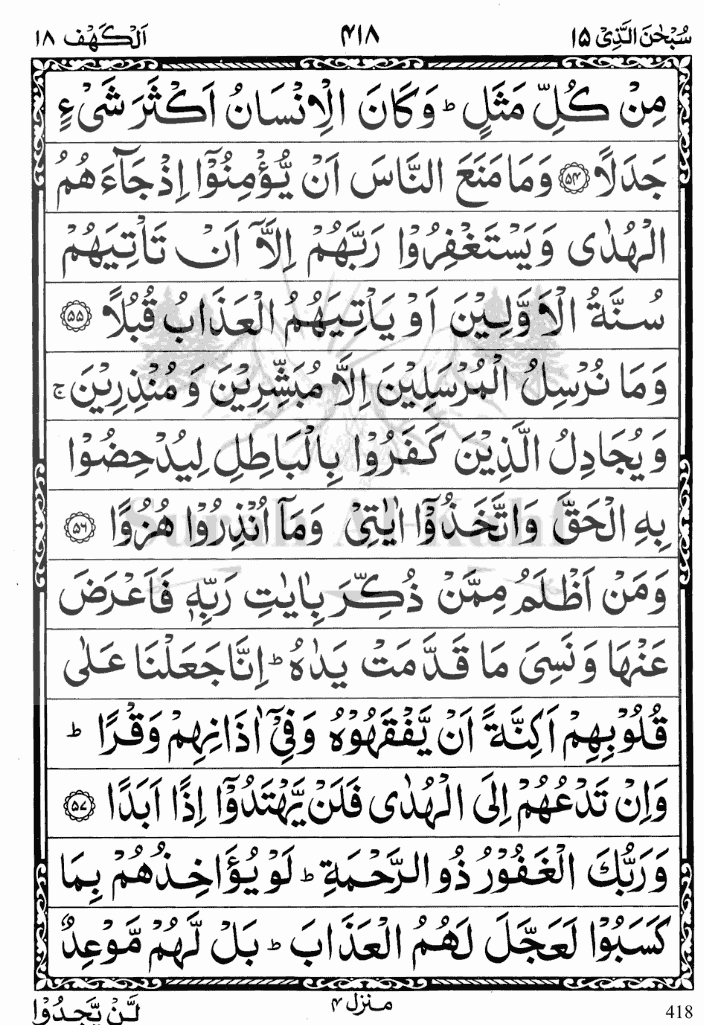 سُبْحٰنَ الَّذِیْ ۱۵ ۴۱۸ اَلْكَهْف ۱۸
مِنْ كُلِّ مَثَلٍ ؕ وَكَانَ الْاِنْسَانُ اَكْثَرَ شَیْءٍ
جَدَلًا ۵۴ وَمَا مَنَعَ النَّاسَ اَنْ یُّؤْمِنُوْۤا اِذْ جَآءَهُمُ
الْهُدٰی وَیَسْتَغْفِرُوْا رَبَّهُمْ اِلَّاۤ اَنْ تَاْتِیَهُمْ
سُنَّةُ الْاَوَّلِیْنَ اَوْ یَاْتِیَهُمُ الْعَذَابُ قُبُلًا ۵۵
وَمَا نُرْسِلُ الْمُرْسَلِیْنَ اِلَّا مُبَشِّرِیْنَ وَمُنْذِرِیْنَ ۚ
وَیُجَادِلُ الَّذِیْنَ كَفَرُوْا بِالْبَاطِلِ لِیُدْحِضُوْا
بِهِ الْحَقَّ وَاتَّخَذُوْۤا اٰیٰتِیْ وَمَاۤ اُنْذِرُوْا هُزُوًا ۵۶
وَمَنْ اَظْلَمُ مِمَّنْ ذُكِّرَ بِاٰیٰتِ رَبِّهٖ فَاَعْرَضَ
عَنْهَا وَنَسِیَ مَا قَدَّمَتْ یَدٰهُ ؕ اِنَّا جَعَلْنَا عَلٰی
قُلُوْبِهِمْ اَكِنَّةً اَنْ یَّفْقَهُوْهُ وَفِیْۤ اٰذَانِهِمْ وَقْرًا ؕ
وَاِنْ تَدْعُهُمْ اِلَی الْهُدٰی فَلَنْ یَّهْتَدُوْۤا اِذًا اَبَدًا ۵۷
وَرَبُّكَ الْغَفُوْرُ ذُو الرَّحْمَةِ ؕ لَوْ یُؤَاخِذُهُمْ بِمَا
كَسَبُوْا لَعَجَّلَ لَهُمُ الْعَذَابَ ؕ بَلْ لَّهُمْ مَّوْعِدٌ
418 منزل ۴ لَّنْ یَّجِدُوْا
Surah Al-Kahf